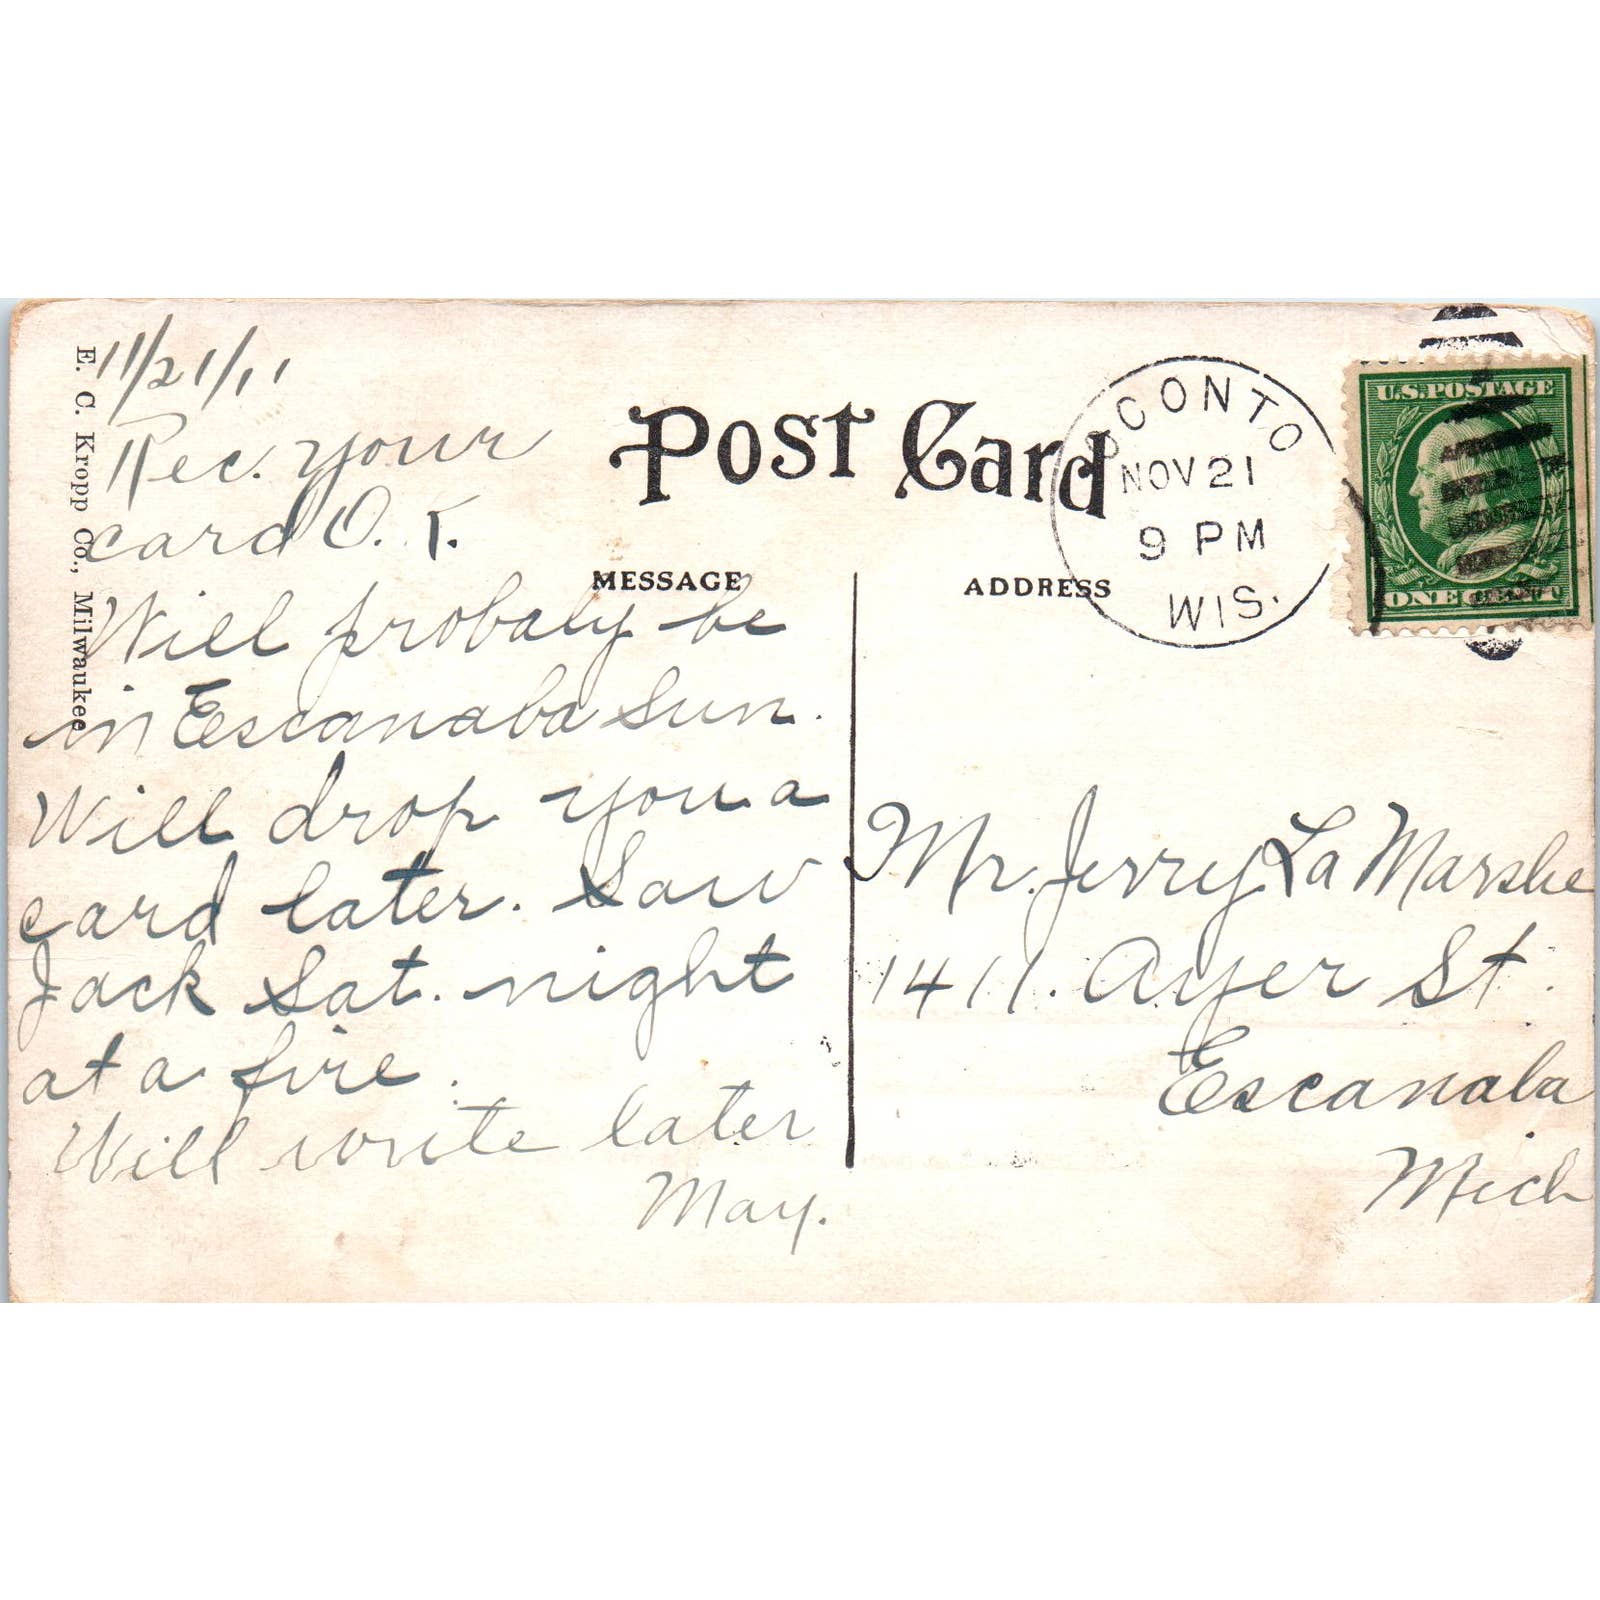 11/21/11
Rec. your
card O. K.
Will probaly be
in Escanaba Sun.
Will drop you a
card later. Saw
Jack Sat. night
at a fire.
Will write later
May.
E. C. Kropp Co., Milwaukee
Post Card
MESSAGE
ADDRESS
OCONTO
NOV 21
9 PM
WIS.
U.S. POSTAGE
ONE CENT
Mr. Jerry La Marshe
1411. Ayer St.
Escanaba
Mich